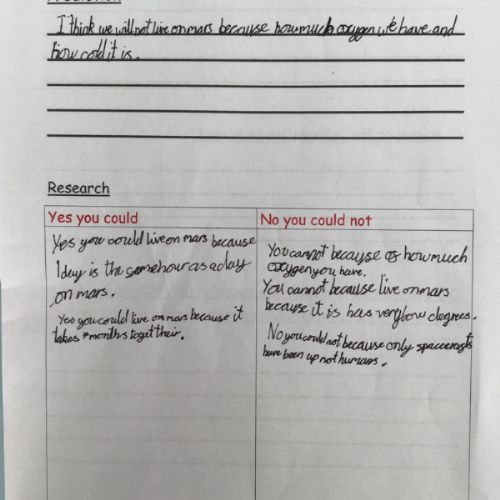 I think we will not live on mars because how much oxygen we have and
how cold it is.
Research
Yes you could
No you could not
Yes you could live on mars because
1 day is the same hour as a day
on mars.
Yes you could live on mars because it
takes months to get their.
You cannot because of how much
oxygen you have.
You cannot because live on mars
because it is has very low degrees.
No you could not because only spacecrafts
have been up not humans.